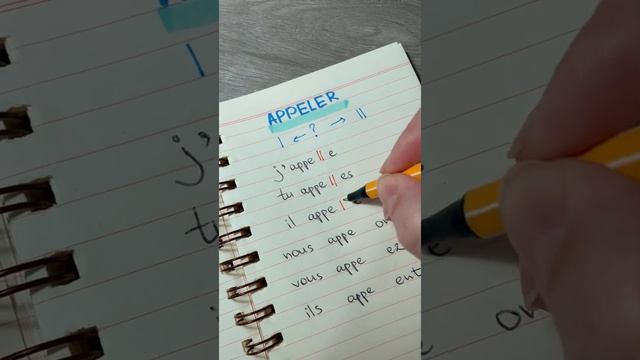 APPELER
l ← ? → ll
j'appelle
tu appelles
il appel
nous appe on
vous appe ez
ils appe ent